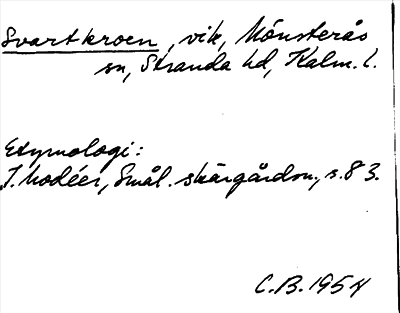 Svartkroen, vik, Mönsterås
sn, Stranda hd, Kalm. l.
Etymologi:
I. Modéer, Smål. skärgårdsn., s. 83.
C.B. 1954